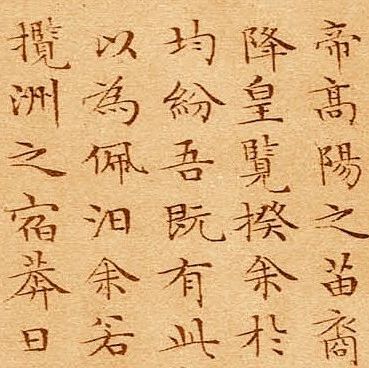 帝髙陽之苗裔
降皇覽揆余於
均紛吾既有此
以為佩汨余若
攬洲之宿莽日